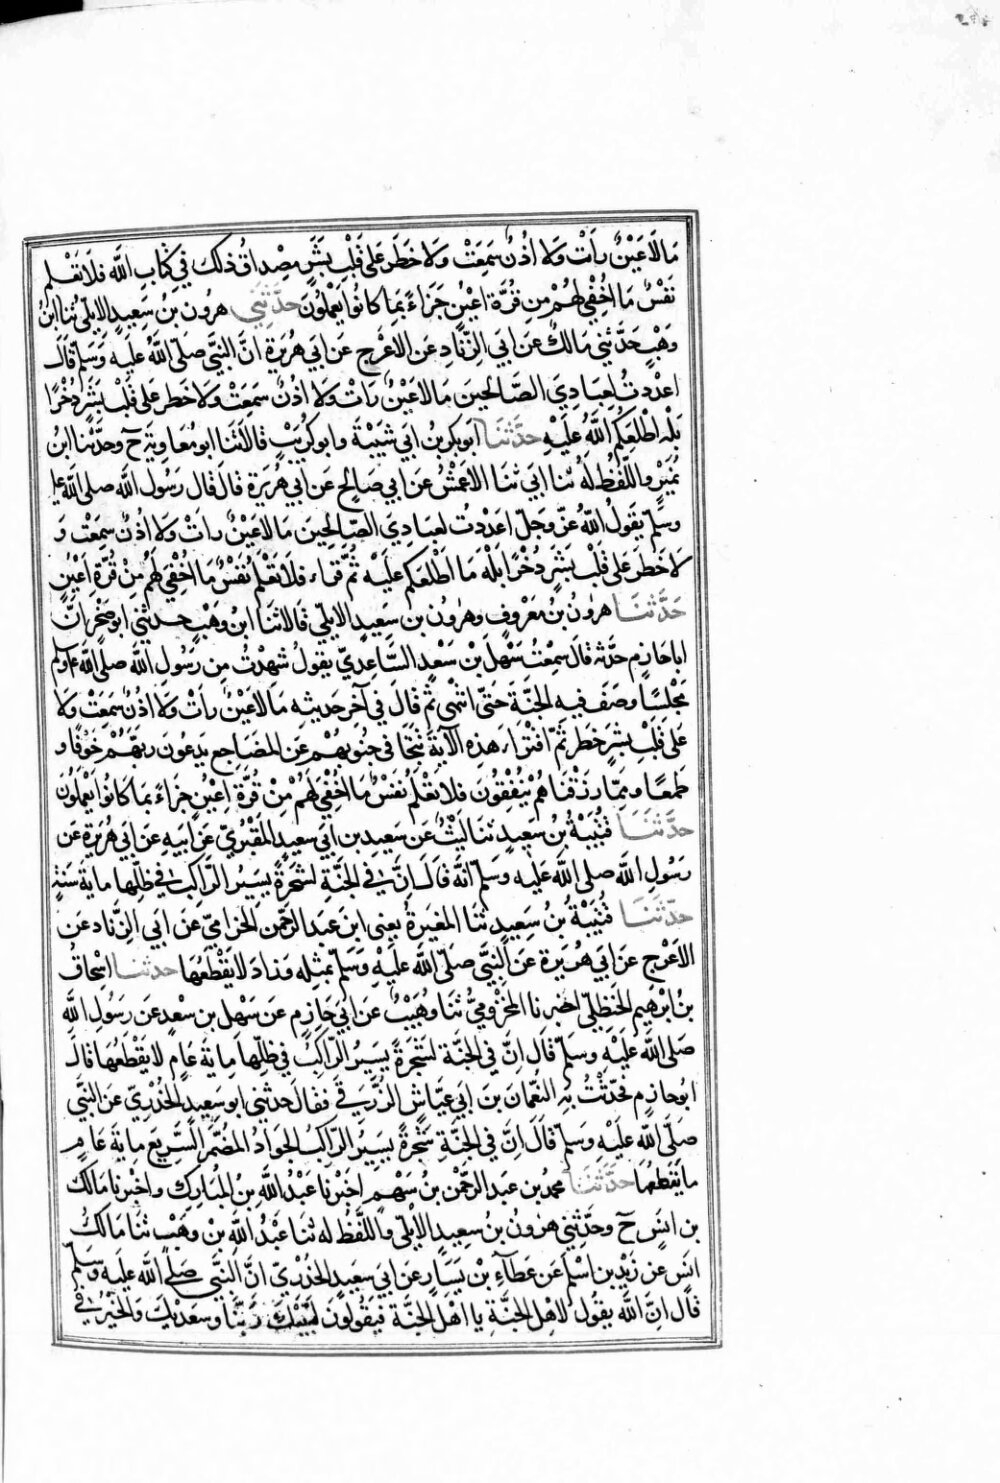 ما لا عَيْنٌ رَأَتْ وَلا اُذُنٌ سَمِعَتْ وَلا خَطَرَ عَلى قَلْبِ بَشَرٍ مِصْداقُ ذلك في كِتابِ اللَّه فَلا تَعْلم
نَفْسٌ مَا اُخْفِيَ لهُمْ مِن قُرَّةِ اَعْيُنٍ جَزاءً بِمَا كانُوا يَعْمَلُونَ حَدَّثَنِي هرُون بن سَعِيدٍ الايلىّ ثنا ابنُ
وَهْبٍ حَدَّثَنِي مالكٌ عن ابي الزِّنادِ عن الاعْرج عن ابي هريرة انَّ النبيَّ صلّى اللَّهُ عليه وَسَلّم قَالَ
اعْدَدتُ لِعِبَادِيَ الصَّالِحينَ مَا لا عَيْنٌ رَاتْ وَلا اذُنٌ سَمِعَتْ وَلا خَطر عَلى قَلْبِ بَشَرٍ ذُخْرًا
بَلْهَ اطْلَعَكم اللَّهُ عَلَيْهِ حدَّثَنَا ابوبكر بن ابي شَيْبَة وابو كُرَيْبٍ قالا ثَنا ابو مُعَاوِيَة ح وحدَّثَنا ابن
نُمَيْرٍ واللَّفْظ لَهُ ثنا ابي ثنا الاعمشُ عن ابي صالح عن ابي هُرَيْرَة قالَ قال رَسُول اللَّه صلى اللَّه عليه
وسلّم يقولُ اللَّه عزّ وجلّ اعدَدْتُ لعِبَادِيَ الصَّالِحِينَ مَا لا عَيْنٌ رَاتْ وَلا اُذُنٌ سَمِعَتْ وَ
لا خَطَر عَلى قَلْبِ بَشَرٍ ذُخْرًا بَلْهَ مَا اطْلَعَكم عَلَيْه ثُمَّ قراء فلا تَعْلَمُ نَفْسٌ مَا اُخْفِيَ لَهُم مِنْ قُرَّةِ اَعْيُنٍ
حَدَّثَنَا هرُون بن مَعْرُوفٍ وهرُون بن سَعِيدٍ الايلي قَالا ثنا ابن وَهْبٍ حدثني ابو صَخْرٍ انّ
ابا حَازِمٍ حدَّثه قال سَمِعْتُ سَهْلَ بن سَعْدٍ السَّاعِدِيّ يقولُ شهِدْتُ مِن رَسُولِ اللَّه صلى اللَّه عليه وسلم
مَجْلسًا وصَفَ فيه الجنَّةَ حَتّى انْتَهى ثم قال في آخِر حَديثِه مَا لا عَيْنٌ رَاتْ وَلا اُذُنٌ سَمِعَتْ وَلا
على قَلْبِ بَشَرٍ خطر ثمّ اقْتَراءَ هذِهِ الآيَة تَتَجَافى جُنُوبُهُمْ عَنِ المَضَاجِعِ يَدْعُونَ رَبَّهُمْ خَوْفًا و
طَمَعًا ومِمَّا رزقْنَاهُمْ يُنْفِقُونَ فلا تَعْلَمُ نَفْسٌ مَا اُخْفِيَ لَهُمْ مِنْ قُرَّةِ اَعْيُنٍ جَزاءً بما كانُوا يَعْمَلُونَ
حَدَّثَنَا قُتَيْبَةُ بن سَعيدٍ ثَنَا لَيْثٌ عَن سَعِيدِ بن ابي سَعيدٍ المَقْبُرِيّ عَن اَبِيهِ عَن ابي هُرَيْرَة عَن
رَسُول اللَّه صلى اللَّه عَلَيْه وَسَلَّم انّه قَالَ اِنَّ في الجنَّةِ لشَجَرةً يَسِيرُ الرَّاكِبُ في ظِلِّها ماية سَنَةٍ
حدّثَنَا قُتَيْبَةُ بن سَعِيدٍ ثنَا المغيرةُ يعني ابن عَبد الرَّحمن الحزاميّ عن ابي الزِّناد عَن
الاعْرَج عَن ابي هُرَيرة عَن النَّبِيّ صَلّى اللَّه عَلَيْهِ وَسَلّم بمثلِه وزادَ لا يَقْطَعُهَا حدثنا اسْحَاقُ
بنُ ابرهيم الحَنظَليّ اخبرنا المخْزُوميُّ ثنا وُهَيْبٌ عَن ابي حَازِمٍ عَن سَهْل بن سَعْدٍ عن رَسُولِ اللَّه
صَلى اللَّه عَلَيْه وسَلّم قال اِنّ في الجَنَّة لَشَجَرةً يَسيرُ الرّاكِبُ في ظِلِّها مِايَة عَامٍ لا يَقْطَعُهَا قالَ
ابو حازِمٍ فحدَّثتُ بِه النُّعْمانَ بن ابي عَيَّاشٍ الزُّرَقيّ فقالَ حدثني ابو سَعِيدٍ الخُدْرِيّ عَن النَّبيّ
صَلّى اللَّه عَلَيْهِ وَسَلّم قَالَ اِنّ في الجَنَّةِ شَجَرةً يَسِيرُ الرّاكِبُ الجوادَ المُضَمَّرَ السَّريعَ ماية عَامٍ
مَا يَقْطَعُهَا حدَّثَنَا محمّد بن عبد الرَّحْمن بن سَهْمٍ اخبَرَنا عَبْدُ اللَّه بنُ المُبَارِكِ واخبَرنا مَالك
بن انَسٍ ح وحَدّثني هرُون بن سعِيدٍ الايليّ واللفْظُ له ثنا عَبْدُ اللَّه بن وهْبٍ ثنا مَالكُ
انَس عن زَيْد بن اسْلَم عَن عَطآءِ بْن يَسَارٍ عن ابي سَعيدٍ الخُدْرِيّ انَّ النَّبيَّ صَلَّى اللَّه عَليه وسَلَّم
قال اِنّ اللَّه يقُولُ لاهْلِ الجنّةِ يا اهْلَ الجنَّة فيَقُولُونَ لَبَّيْكَ رَبَّنا وسَعدَيْكَ والخَيْرُ في